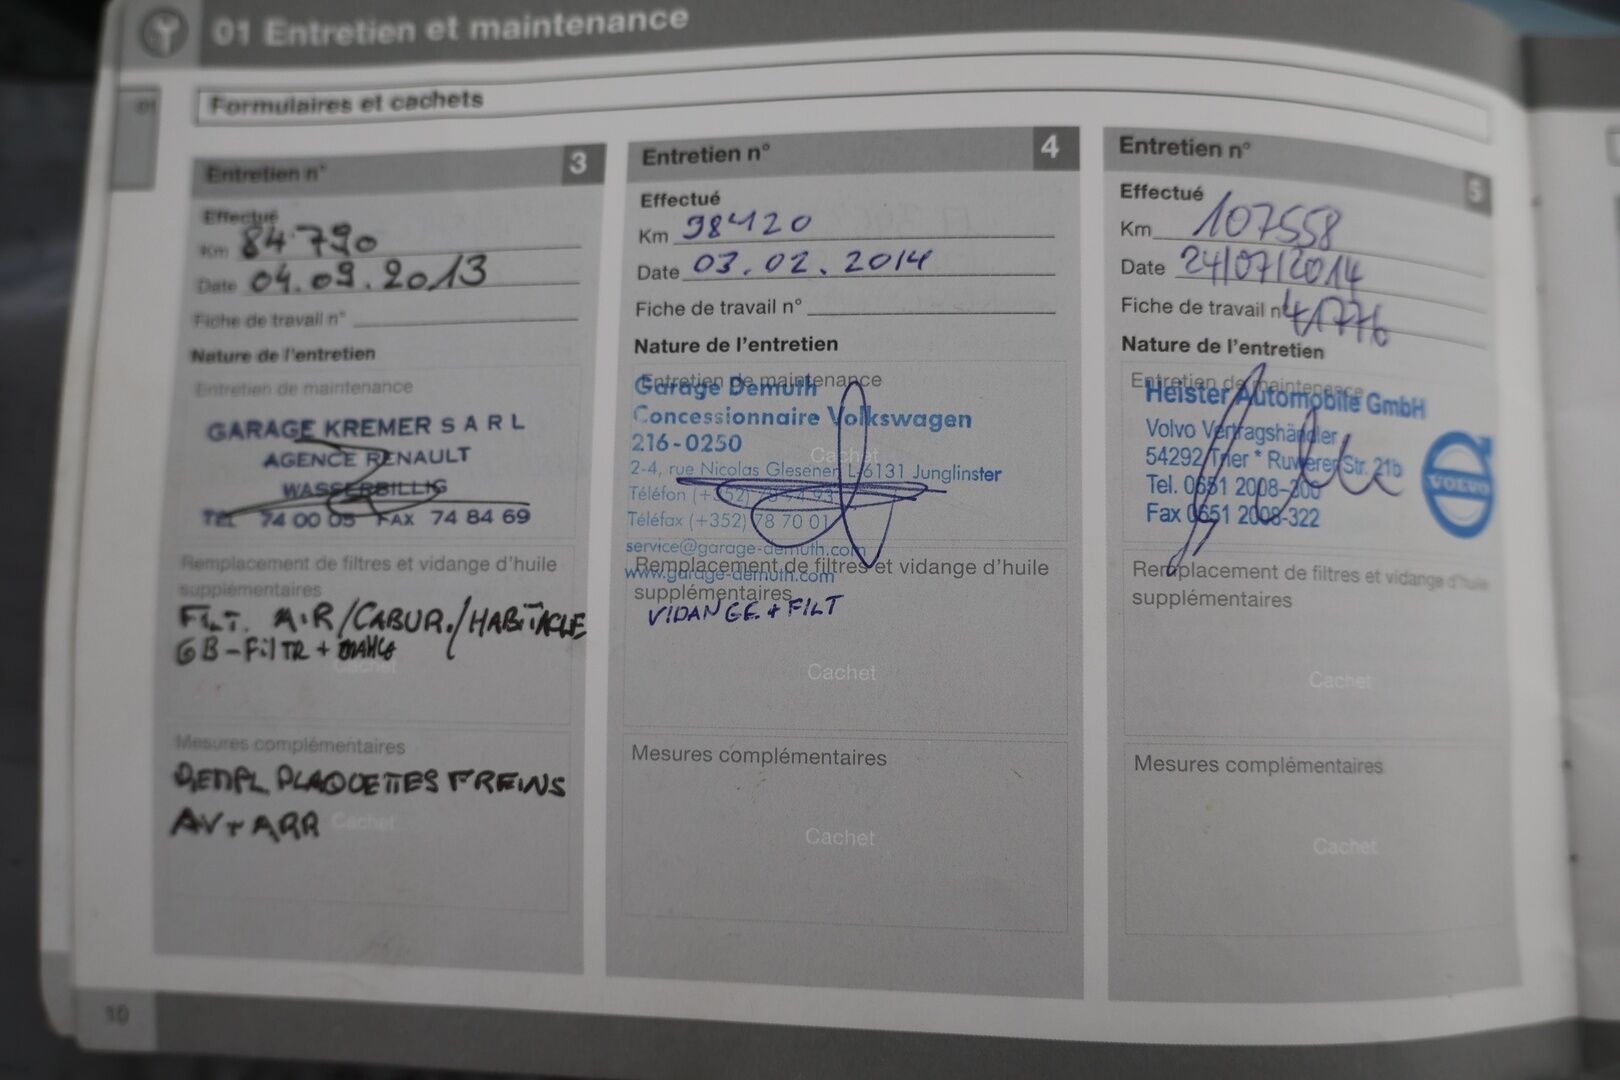 01 Entretien et maintenance
01
Formulaires et cachets
Entretien n° 3
Effectué
Km 84790
Date 04.09.2013
Fiche de travail n°
Nature de l'entretien
Entretien de maintenance
GARAGE KREMER SARL
AGENCE RENAULT
WASSERBILLIG
TEL 74 00 05 FAX 74 84 69
Remplacement de filtres et vidange d'huile
supplémentaires
FILT. AIR/CABUR./HABITACLE
GB-FILTR +
Cachet
Mesures complémentaires
REMPL PLAQUETTES FREINS
AV + ARR
Cachet
10
Entretien n° 4
Effectué
Km 98420
Date 03.02.2014
Fiche de travail n°
Nature de l'entretien
Entretien de maintenance
Garage Demuth
Concessionnaire Volkswagen
216-0250
Cachet
2-4, rue Nicolas Glesener L-6131 Junglinster
Téléfon (+352)
Téléfax (+352) 78 70 01
service@garage-demuth.com
www.garage-demuth.com
Remplacement de filtres et vidange d'huile
supplémentaires
VIDANGE + FILT
Cachet
Mesures complémentaires
Cachet
Entretien n° 5
Effectué
Km 107558
Date 24/07/2014
Fiche de travail n° 41776
Nature de l'entretien
Entretien de maintenance
Heister Automobile GmbH
Volvo Vertragshändler
54292 Trier * Ruwerer Str. 21b
Tel. 0651 2008-200
Fax 0651 2008-322
VOLVO
Remplacement de filtres et vidange d'huile
supplémentaires
Cachet
Mesures complémentaires
Cachet